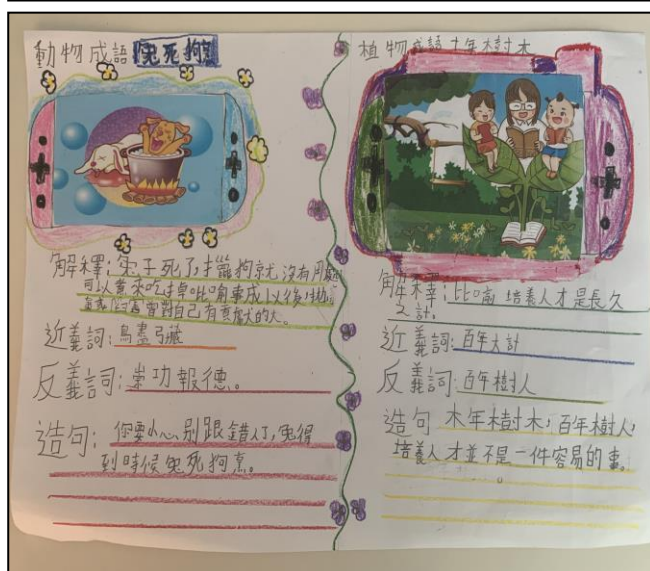 動物成語 兔死狗
解釋:兔子死了,獵狗就沒有用
可以煮來吃掉。比喻事成以後,
對自己有貢獻的人。
近義詞:鳥盡弓藏
反義詞:崇功報德。
造句:你要小心別跟錯人了,免得
到時候兔死狗烹。
植物成語 十年樹木
解釋:比喻 培養人才是長久
之計。
近義詞:百年大計
反義詞:百年樹人
造句 木年樹木,百年樹人,
培養人才並不是一件容易的事。